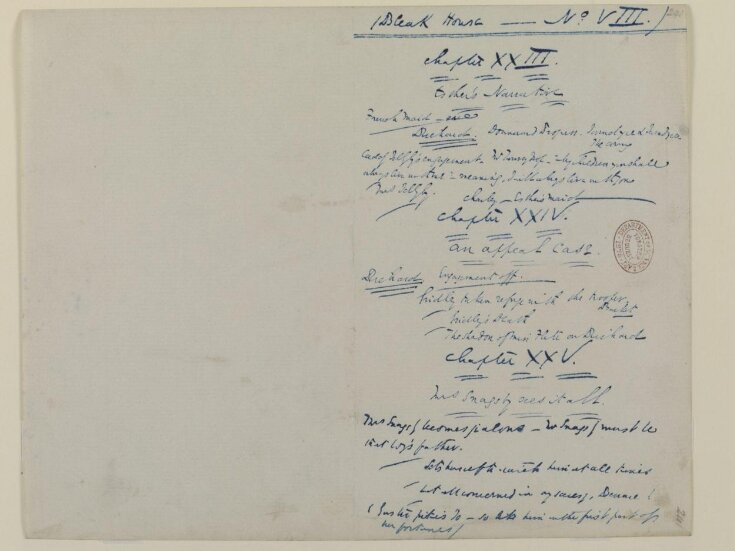 (Bleak House —— No VIII.)
Chapter XXIII.
Esther's Narrative
French maid –
Richard. Downward Progress. Jarndyce & Jarndyce.
Caddy Jellyby's engagement. Mr Turveydrop – "my children, you shall
always live with me" – meaning, I will always live with you
Mrs Jellyby.
Charley – Esther's maid
Chapter XXIV.
An appeal Case.
Richard. Engagement off.
Gridley taken refuge with the trooper.
Bucket
Gridley's Death
The shadow of Miss Flite on Richard
Chapter XXV.
Mrs Snagsby sees it all.
Mrs Snagsby becomes jealous – Mr Snagsby must be
that boy's father.
Sets herself to watch him at all times
Not all concerned in any secresy,
(Guster pities Jo – so takes him in the first part of
her fortunes)